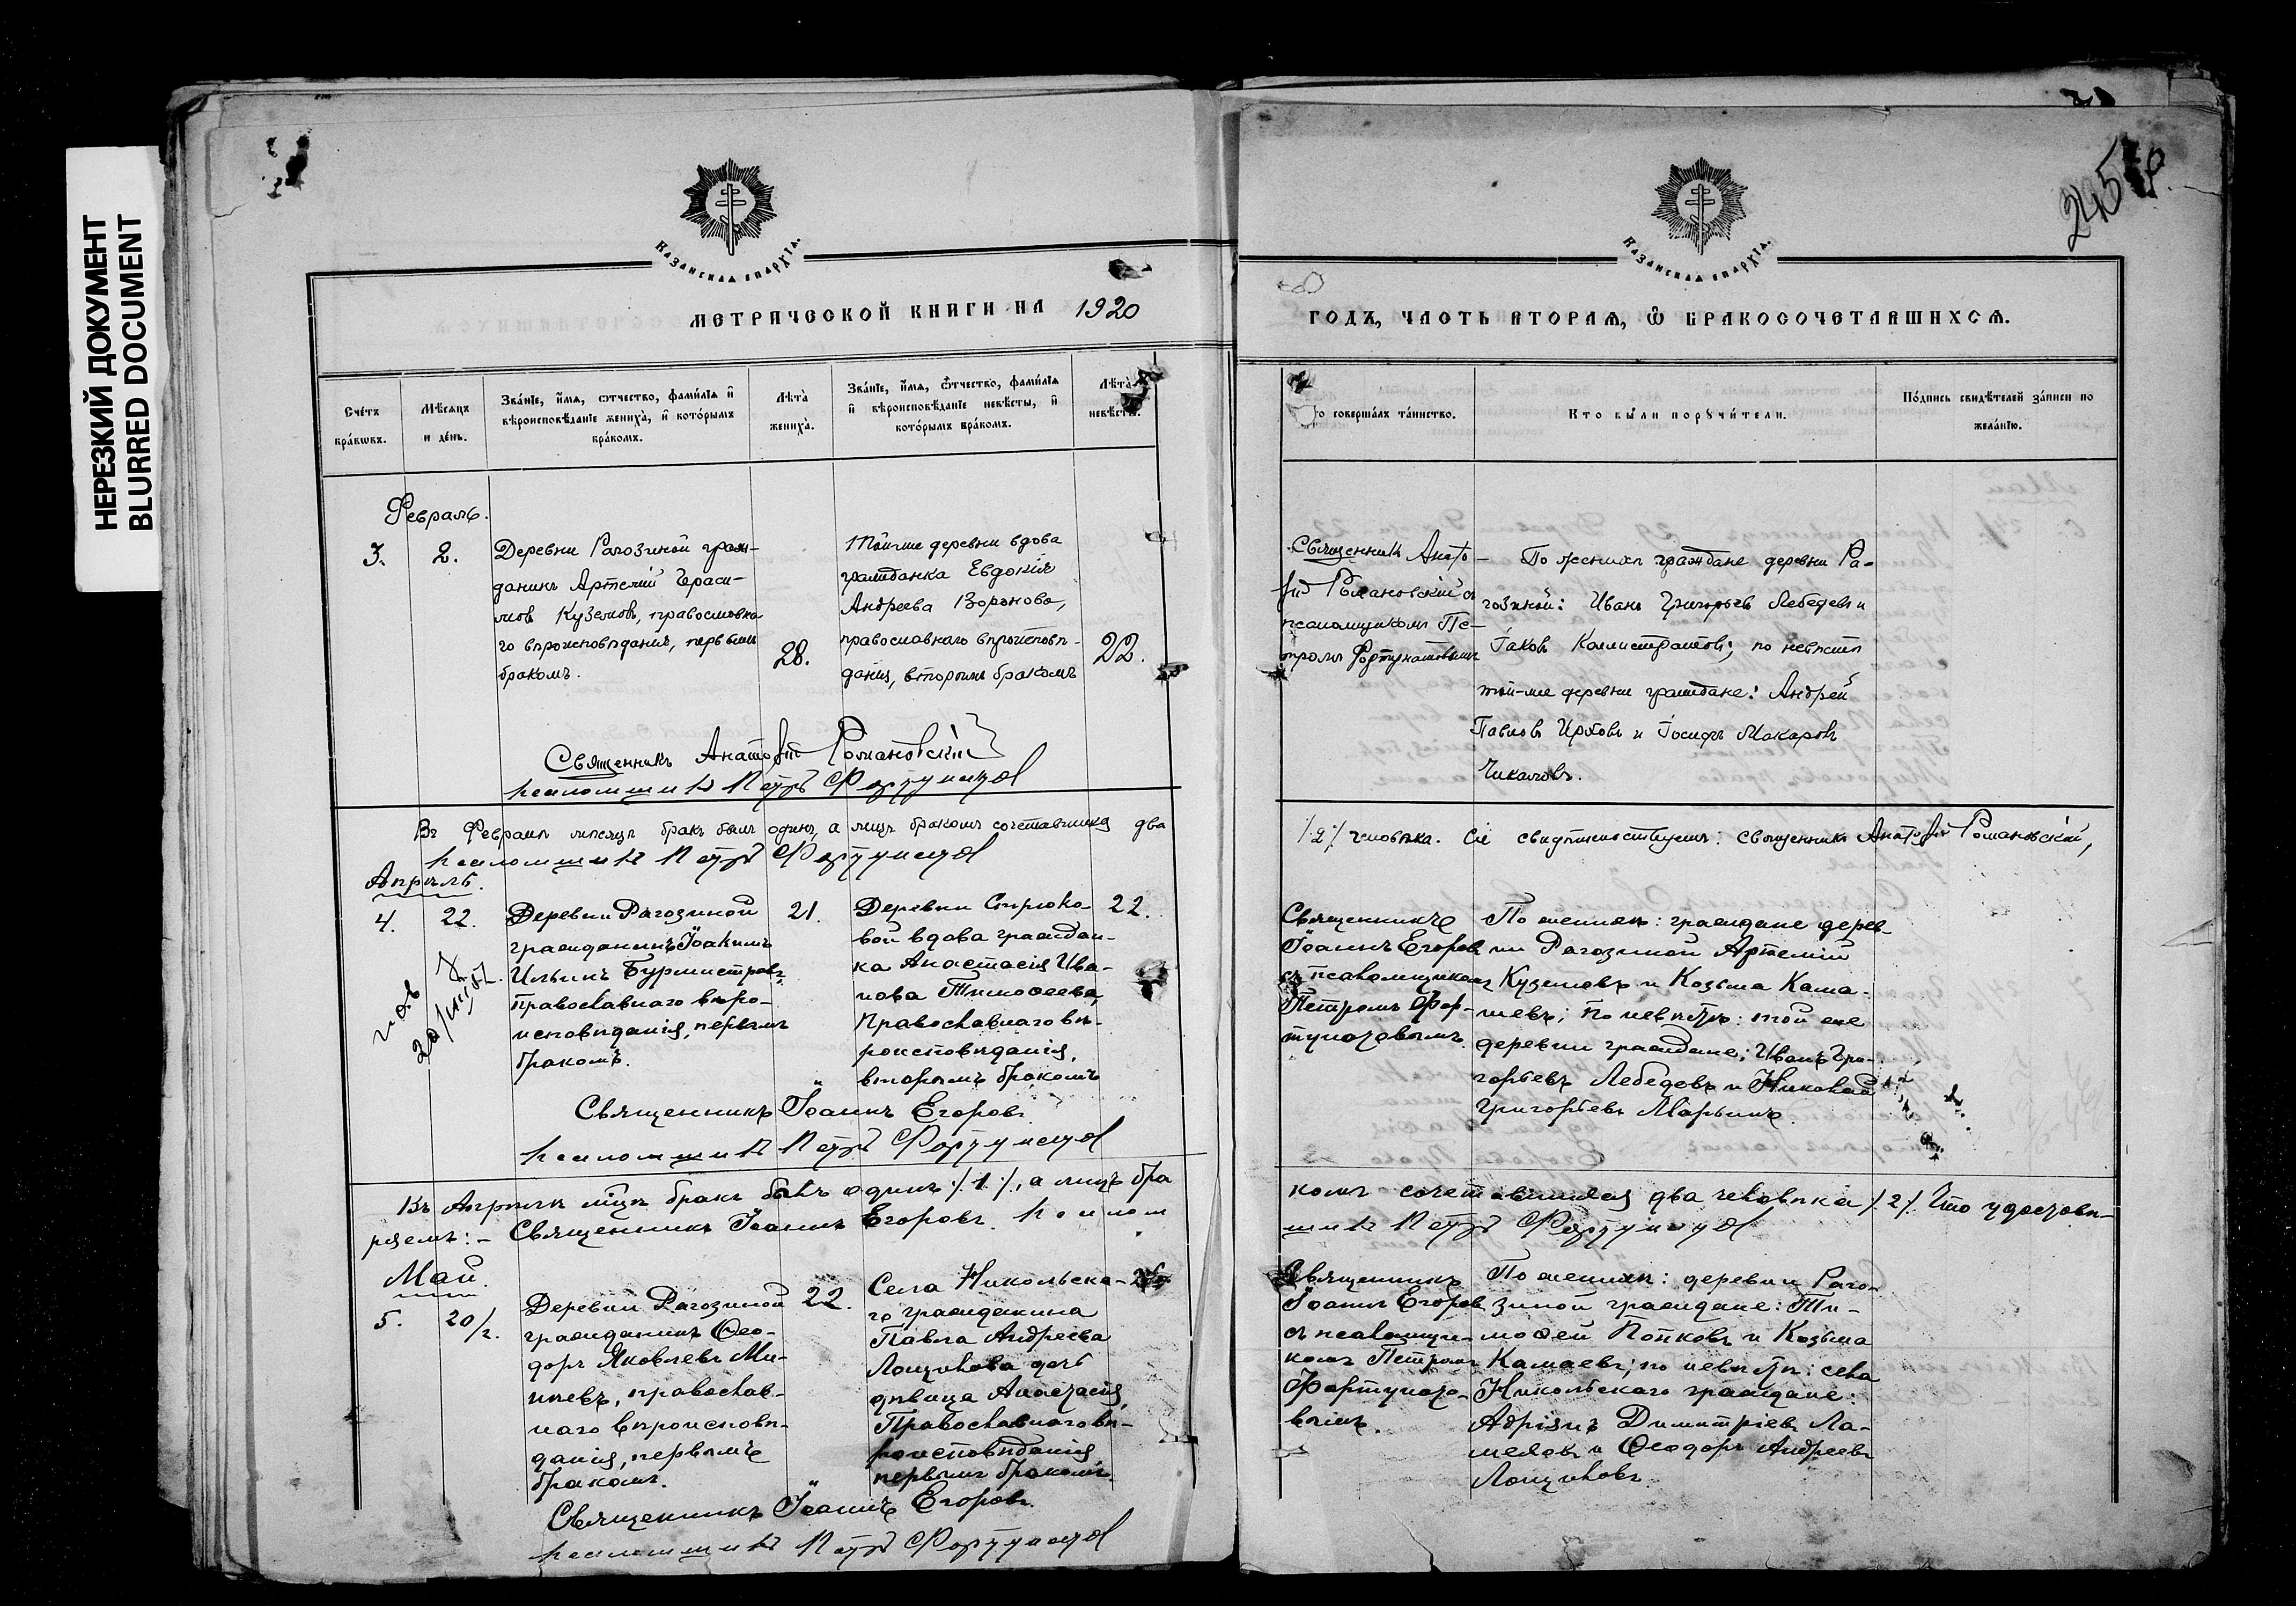 НЕРЕЗКИЙ ДОКУМЕНТ
BLURRED DOCUMENT
Казанская епархїа.
МЕТРИЧЕСКОЙ КНИГИ НА 1920
Счетъ браквъ.
Мѣсяцъ и день.
Званїе, имя, отчество, фамилїя и вѣроисповѣданїе жениха, и которымъ бракомъ.
Лѣта жениха.
Званїе, имя, отчество, фамилїя и вѣроисповѣданїе невѣсты, и которымъ бракомъ.
Лѣта невѣсты.
Февраль.
3.
2.
Деревни Рагозиной граж-
данинъ Артемій Гераси-
мовъ Куземовъ, православна-
го вѣроисповѣданія, первымъ
бракомъ.
28.
Той-же деревни вдова
гражданка Евдокія
Андреева Воронова,
православнаго вѣроисповѣ-
данія, вторымъ бракомъ
22.
Священникъ Анатолій Романовскій
псаломщикъ Петръ Фортунатов
Въ Февралѣ мѣсяцѣ бракъ былъ одинъ, а лицъ бракомъ сочетавшихся два
псаломщикъ Петръ Фортунатов
Апрѣль.
4.
22.
Деревни Рагозиной
гражданинъ Іоакимъ
Ильинъ Бурмистровъ.
Православнаго вѣро-
исповѣданія, первымъ
бракомъ.
21.
Деревни Стрюко-
вой вдова граждан-
ка Анастасія Ива-
нова Тимоѳеева,
Православнаго вѣ-
роисповѣданія,
вторымъ бракомъ
22.
Священникъ Іоаннъ Егоровъ.
псаломщикъ Петръ Фортунатов
Въ Апрѣлѣ мцѣ бракъ былъ одинъ /1/, а лицъ бра
ряемъ: - Священникъ Іоаннъ Егоровъ. псалом
Май.
5.
20/2.
Деревни Рагозиной
гражданинъ Ѳео-
доръ Яковлевъ Ми-
нѣевъ, православ-
наго вѣроисповѣ-
данія, первымъ
бракомъ.
22.
Села Никольска-
го гражданина
Павла Андреева
Лощилова дочь
дѣвица Анастасія,
Православнаго вѣ-
роисповѣданія
первымъ бракомъ
Священникъ Іоаннъ Егоровъ.
псаломщикъ Петръ Фортунатов
Казанская епархїа.
245
ГОДЪ, ЧАСТЬ ВТОРАЯ, Ѿ БРАКОСОЧЕТАВШИХСЯ.
то совершалъ таинство.
Кто были поручители.
Подпись свидѣтелей записи по желанїю.
Священникъ Анато
лій Романовскій съ
псаломщикомъ Пе-
тромъ Фортунатовымъ
По женихѣ граждане деревни Ра-
гозиной: Иванъ Григорьевъ Лебедевъ и
Іаковъ Каллистратовъ; по невѣстѣ
той-же деревни граждане: Андрей
Павловъ и Іосифъ Макаровъ
Чикаловъ.
/2/ человѣка. Сіе свидѣтельствуемъ: священникъ Анатолій Романовскій,
Священникъ
Іоаннъ Егоровъ
съ псаломщикомъ
Петромъ Фор-
тунатовымъ.
По женихѣ: граждане дерев-
ни Рагозиной Артемій
Куземовъ и Козьма Кама-
евъ; По невѣстѣ: той же
деревни граждане: Иванъ Гри-
горьевъ Лебедевъ и Николай
Григорьевъ Марьинъ.
комъ сочетавшихся два человѣка /2/. Что удостовѣ-
щикъ Петръ Фортунатов
Священникъ
Іоаннъ Егоровъ
съ псаломщи-
комъ Петромъ
Фортунато-
вымъ.
По женихѣ: деревни Раго-
зиной граждане: Ти-
моѳей Попковъ и Козьма
Камаевъ; по невѣстѣ: села
Никольскаго граждане:
Адріанъ Димитріевъ Ла-
и Ѳеодоръ Андреевъ
Лощиловъ.